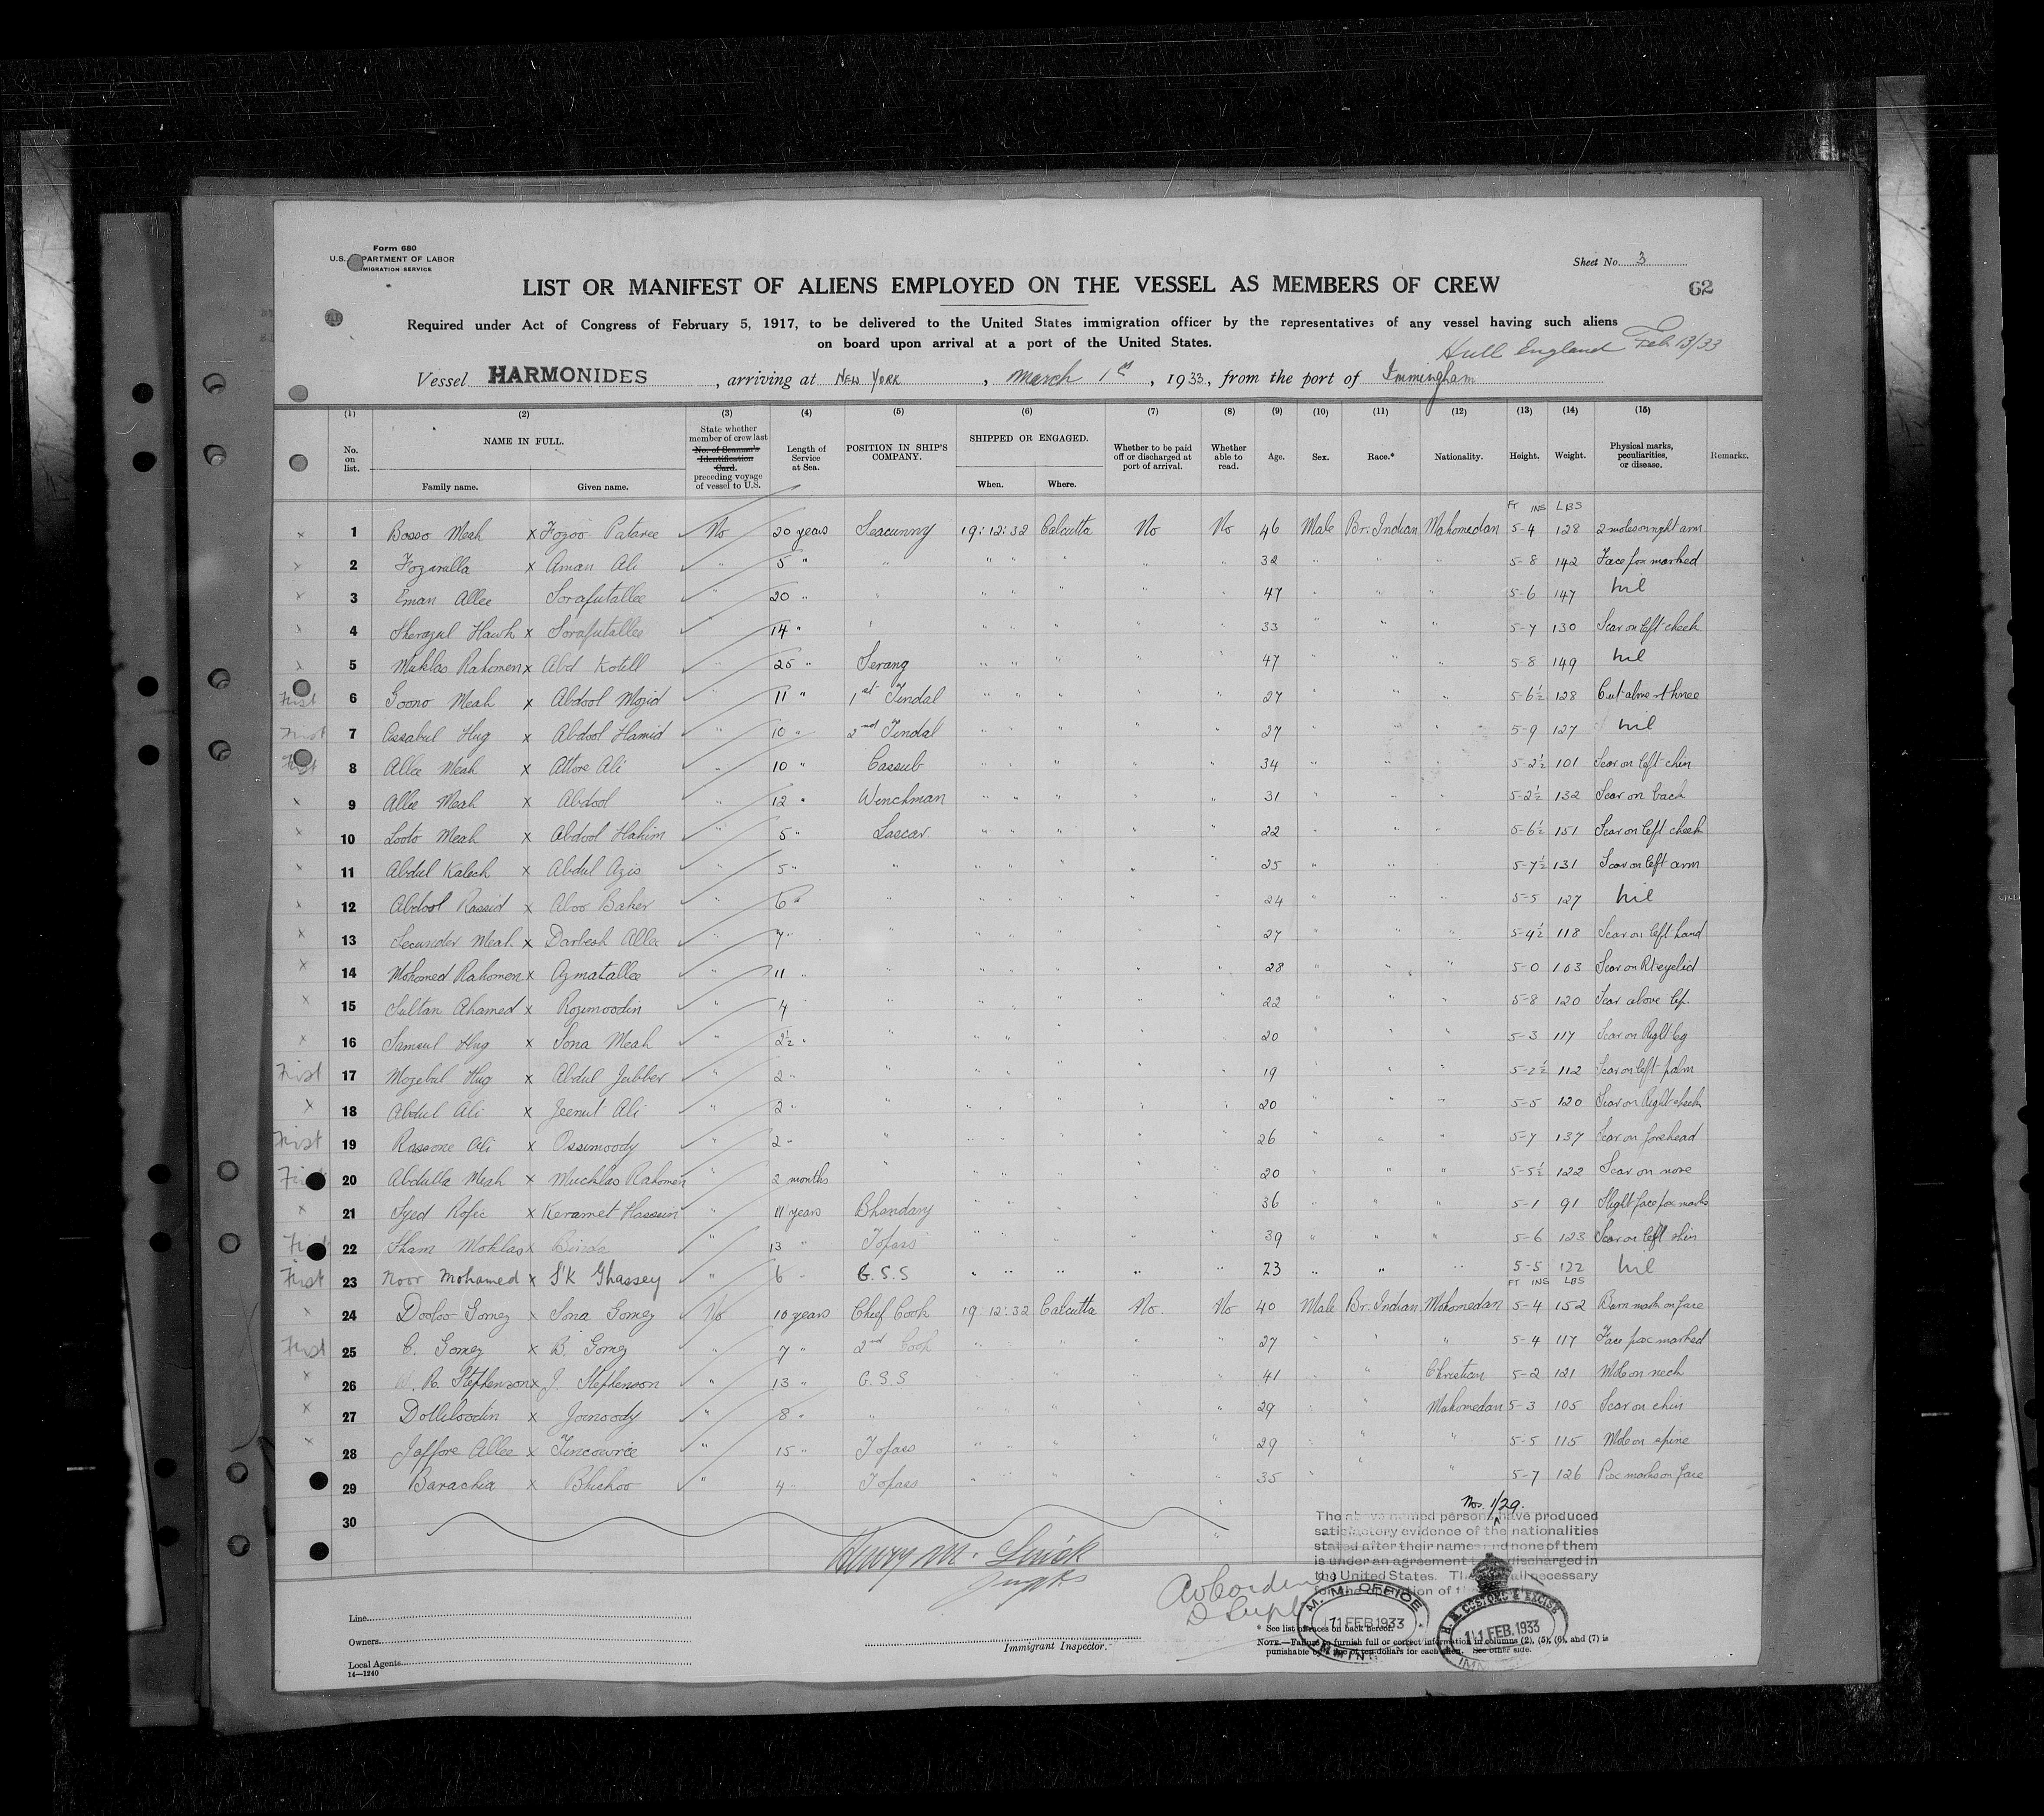 Form 680
U.S. DEPARTMENT OF LABOR
IMMIGRATION SERVICE
Sheet No. 3
62
LIST OR MANIFEST OF ALIENS EMPLOYED ON THE VESSEL AS MEMBERS OF CREW
Required under Act of Congress of February 5, 1917, to be delivered to the United States immigration officer by the representatives of any vessel having such aliens
on board upon arrival at a port of the United States.
Hull England Feb 13/33
Vessel HARMONIDES, arriving at NEW YORK, March 1st, 1933, from the port of Immingham
(1) (2) (3) (4) (5) (6) (7) (8) (9) (10) (11) (12) (13) (14) (15)
No. on list. NAME IN FULL. Family name. Given name. State whether member of crew last No. of Seaman's Identification Card. preceding voyage of vessel to U.S. Length of Service at Sea. POSITION IN SHIP'S COMPANY. SHIPPED OR ENGAGED. When. Where. Whether to be paid off or discharged at port of arrival. Whether able to read. Age. Sex. Race.* Nationality. Height. Weight. Physical marks, peculiarities, or disease. Remarks.
FT INS LBS
x 1 Bosso Meah x Fozoo Pataree No 20 years Seacunny 19:12:32 Calcutta No No 46 Male Br: Indian Mahomedan 5-4 128 2 moles on right arm
x 2 Fozaralla x Aman Ali " 5 " " " " " " " 32 " " " 5-8 142 Face pox marked
x 3 Eman Allee Sorafutallee " 20 " " " " " " " 47 " " " 5-6 147 nil
x 4 Sherazul Hawk x Sorafutallee " 14 " " " " " " " 33 " " " 5-7 130 Scar on left cheek
x 5 Muklas Rahomen x Abd Kotell " 25 " Serang " " " " " 47 " " " 5-8 149 nil
First 6 Goono Meah x Abdool Mozid " 11 " 1st Tindal " " " " " 27 " " " 5-6½ 128 Cut above rt knee
First 7 Assabul Hug x Abdool Hamid " 10 " 2nd Tindal " " " " " 27 " " " 5-9 127 nil
First 8 Allee Meah x Attore Ali " 10 " Cassub " " " " " 34 " " " 5-2½ 101 Scar on left chin
x 9 Allee Meah x Abdool " 12 " Winchman " " " " " 31 " " " 5-2½ 132 Scar on back
x 10 Looto Meah x Abdool Hakim " 5 " Lascar " " " " " 22 " " " 5-6½ 151 Scar on left cheek
x 11 Abdul Kalech x Abdul Azis " 5 " " " " " " " 25 " " " 5-7½ 131 Scar on left arm
x 12 Abdool Rassid x Aboo Baker " 6 " " " " " " " 24 " " " 5-5 127 nil
x 13 Secunder Meah x Darbesh Allee " 7 " " " " " " " 27 " " " 5-4½ 118 Scar on left hand
x 14 Mohomed Rahomen x Azmatallee " 11 " " " " " " " 28 " " " 5-0 103 Scar on Rt eyelid
x 15 Sultan Ahamed x Rozimoodin " 4 " " " " " " 22 " " " 5-8 120 Scar above lip.
x 16 Samsul Hug x Sona Meah " 2½ " " " " " " " 20 " " " 5-3 117 Scar on Right leg
First 17 Mozebul Hug x Abdul Jubber " 2 " " " " " " " 19 " " " 5-2½ 112 Scar on left palm
x 18 Abdul Ali x Jeenut Ali " 2 " " " " " " " 20 " " " 5-5 120 Scar on Right cheek
First 19 Rossone Ali x Ossimoody " 2 " " " " " " " 26 " " " 5-7 137 Scar on forehead
First 20 Abdulla Meah x Mucklas Rahomen " 2 months " " " " " " 20 " " " 5-5½ 122 Scar on nose
x 21 Syed Rofic x Keramet Hossein " 11 years Bhandary " " " " " 36 " " " 5-1 91 Slight face pox marks
First 22 Sham Moklas x Binda " 13 " Topass " " " " " 39 " " " 5-6 123 Scar on left shin
First 23 Noor Mohamed x S'K Ghassey " 6 " G.S.S " " " " " 23 " " " 5-5 122 nil
FT INS LBS
x 24 Dooloo Gomez x Sona Gomez No 10 years Chief Cook 19:12:32 Calcutta No. No 40 Male Br: Indian Mohomedan 5-4 152 Burn mark on face
First 25 C. Gomez x B. Gomez " 7 " 2nd Cook " " " " " 27 " " " 5-4 117 Face pox marked
x 26 W. R. Stephenson x J. Stephenson " 13 " G.S.S " " " " " 41 " " Christian 5-2 121 Mole on neck
x 27 Dolliloodin x Joinoody " 8 " " " " " " " 29 " " Mahomedan 5-3 105 Scar on chin
x 28 Jaffore Allee x Tincowrie " 15 " Topass " " " " " 29 " " " 5-5 115 Mole on spine
29 Barachia x Bhichoo " 4 " Topass " " " " " 35 " " " 5-7 126 Pox marks on face
30
Nos. 1/29.
The above named persons have produced
satisfactory evidence of the nationalities
stated after their names and none of them
is under an agreement to be discharged in
the United States.
Henry M.
M. M. OFFICE
11 FEB 1933
H. M. CUSTOMS & EXCISE
11 FEB. 1933
Line
Owners
Local Agents
14—1240
Immigrant Inspector.
* See list of races on back hereof.
NOTE.—Failure to furnish full or correct information in columns (2), (5), (6), and (7) is
punishable by a fine of ten dollars for each alien. See other side.